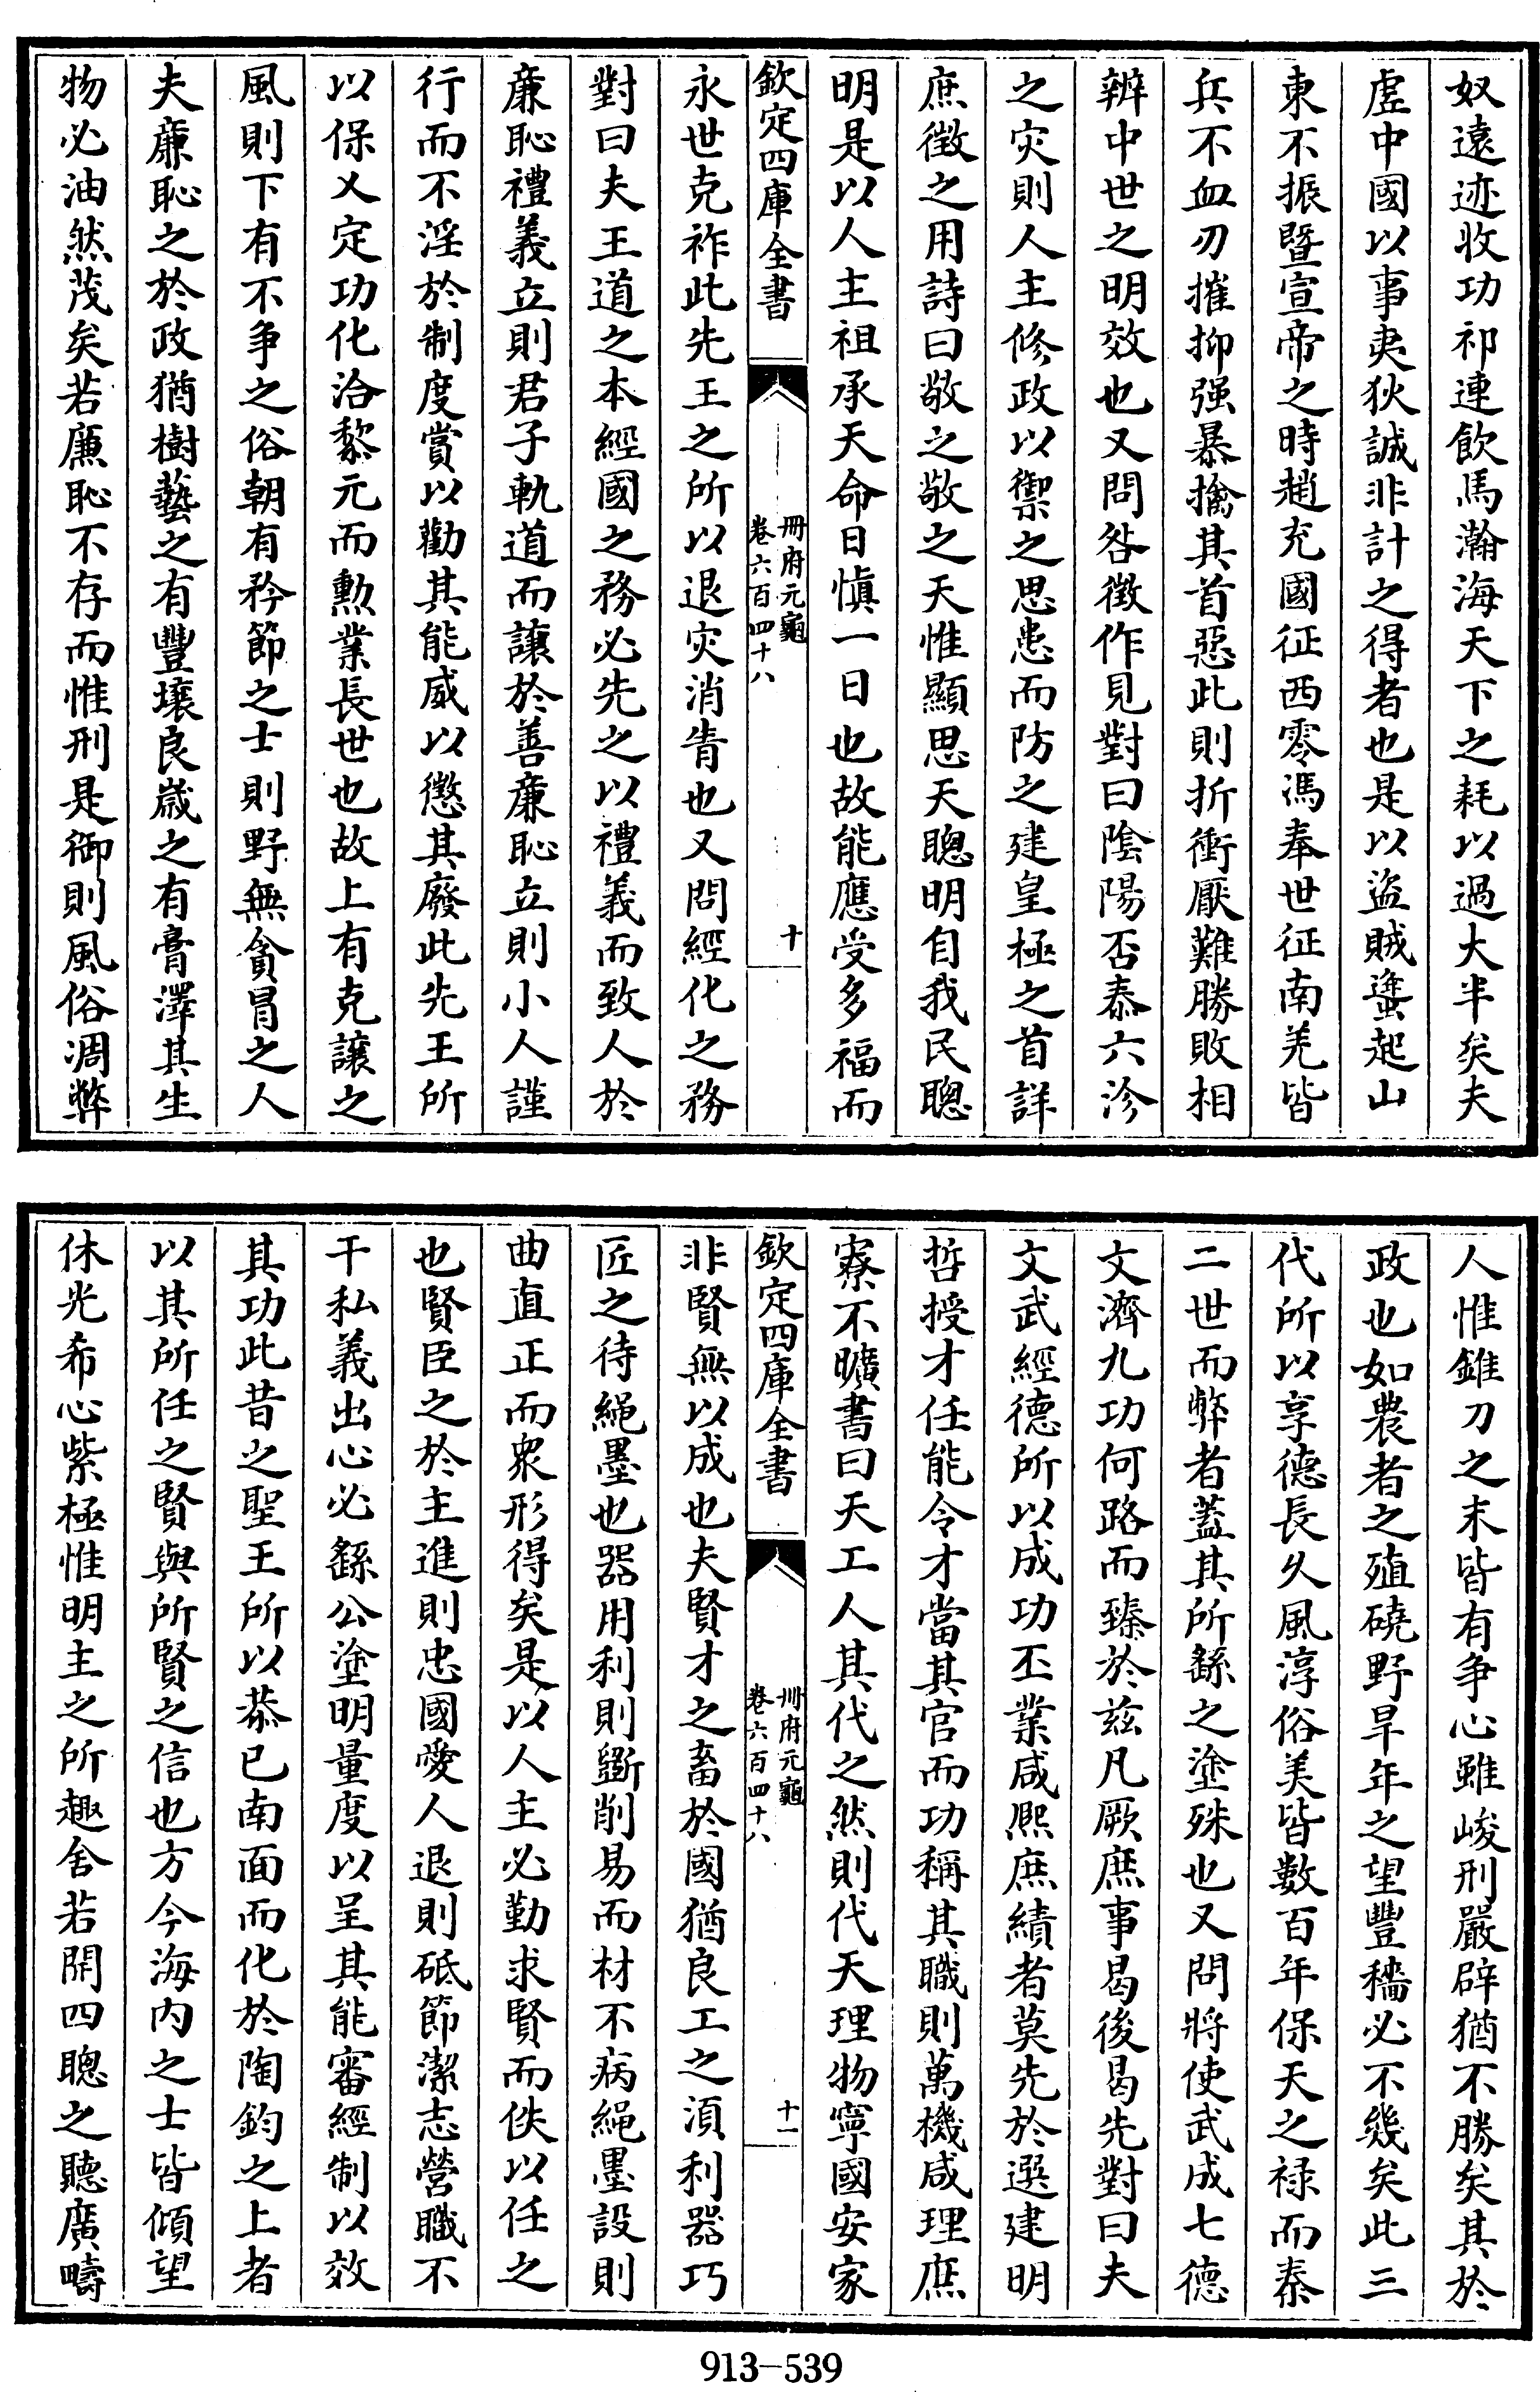 奴遠迹收功祁連飲馬瀚海天下之耗以過大半矣夫
虛中國以事夷狄誠非計之得者也是以盗賊蠭起山
東不振暨宣帝之時趙充國征西零馮奉世征南羌皆
兵不血刃摧抑强暴擒其首惡此則折衝厭難勝敗相
辨中世之明效也又問咎徵作見對曰陰陽否泰六沴
之灾則人主修政以禦之思患而防之建皇極之首詳
庶徵之用詩曰敬之敬之天惟顯思天聰明自我民聰
明是以人主祖承天命日慎一日也故能應受多福而
欽定四庫全書
冊府元龜
卷六百四十八
十
永世克祚此先王之所以退灾消眚也又問經化之務
對曰夫王道之本經國之務必先之以禮義而致人於
廉恥禮義立則君子軌道而讓於善廉恥立則小人謹
行而不淫於制度賞以勸其能威以懲其廢此先王所
以保乂定功化洽黎元而勲業長世也故上有克讓之
風則下有不争之俗朝有矜節之士則野無貪冒之人
夫廉恥之於政猶樹藝之有豐壤良歲之有膏澤其生
物必油然茂矣若廉恥不存而惟刑是御則風俗凋弊
人惟錐刀之末皆有争心雖峻刑嚴辟猶不勝矣其於
政也如農者之殖磽野旱年之望豐穡必不幾矣此三
代所以享德長久風淳俗美皆數百年保天之禄而秦
二世而弊者蓋其所繇之塗殊也又問將使武成七德
文濟九功何路而臻於兹凡厥庶事曷後曷先對曰夫
文武經德所以成功丕業咸熙庶績者莫先於選建明
哲授才任能令才當其官而功稱其職則萬機咸理庶
寮不曠書曰天工人其代之然則代天理物寧國安家
欽定四庫全書
冊府元龜
卷六百四十八
十一
非賢無以成也夫賢才之畜於國猶良工之湏利器巧
匠之待繩墨也器用利則斵削易而材不病繩墨設則
曲直正而衆形得矣是以人主必勤求賢而佚以任之
也賢臣之於主進則忠國愛人退則砥節潔志營職不
干私義出心必繇公塗明量度以呈其能審經制以效
其功此昔之聖王所以恭已南面而化於陶鈞之上者
以其所任之賢與所賢之信也方今海内之士皆傾望
休光希心紫極惟明主之所趣舍若開四聰之聽廣疇
913—539